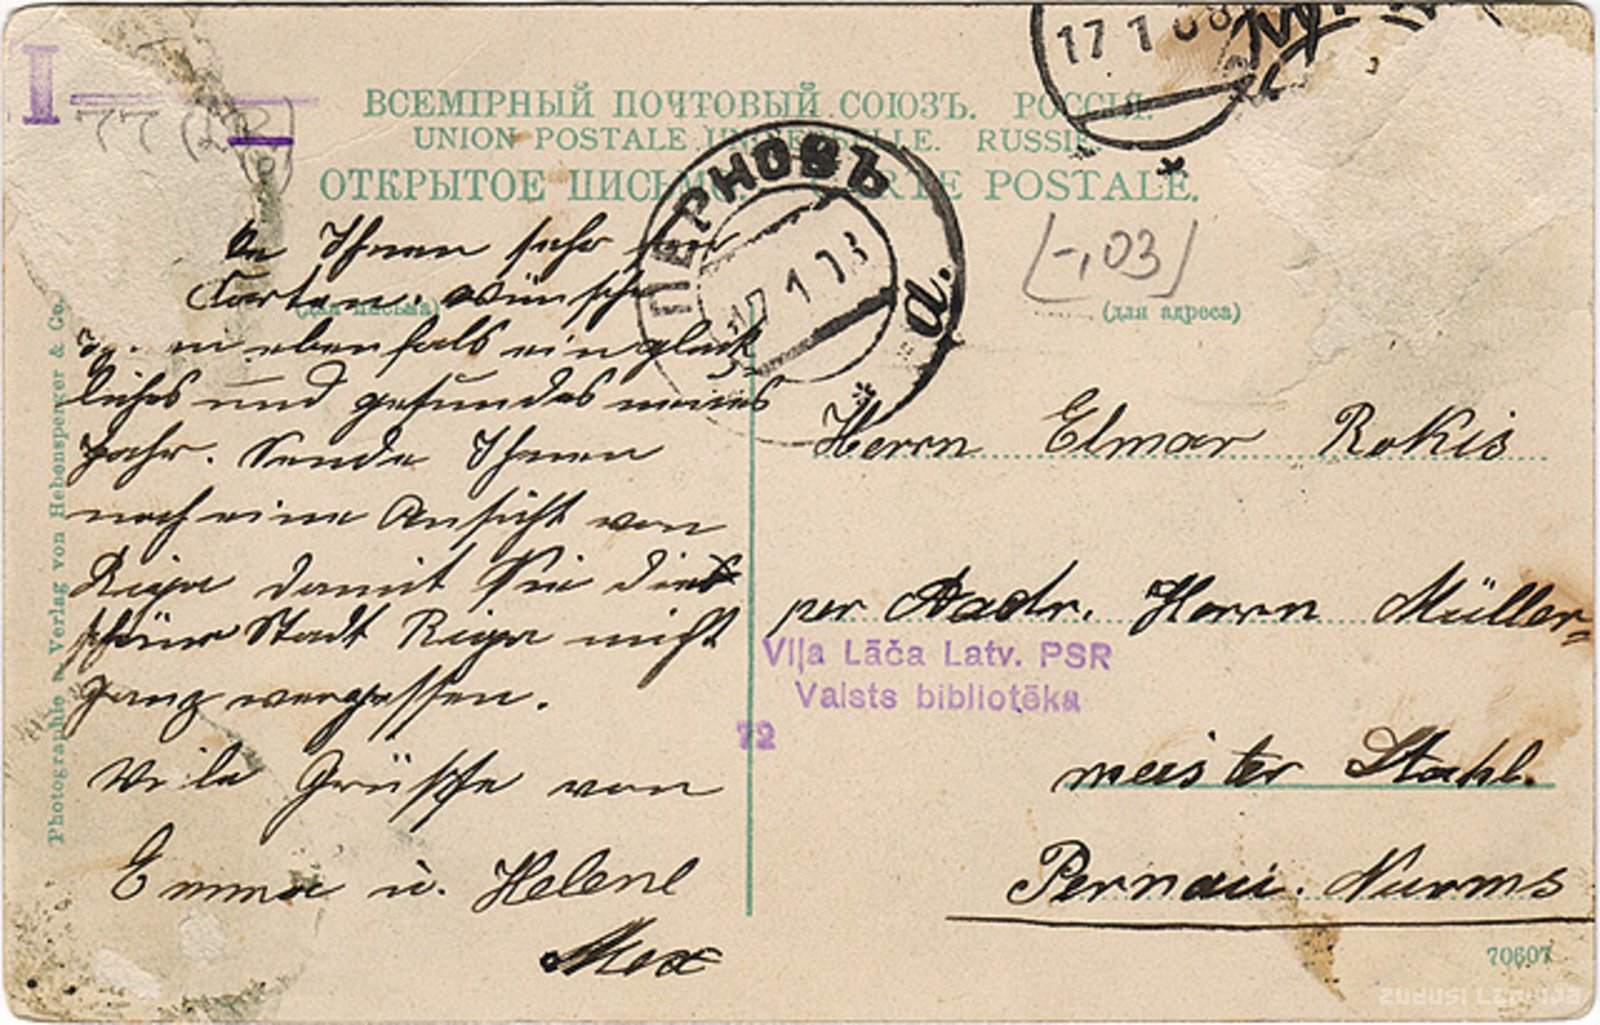 I
77
17 1 08
ВСЕМІРНЫЙ ПОЧТОВЫЙ СОЮЗЪ. РОССІЯ.
UNION POSTALE UNIVERSELLE. RUSSIE.
ОТКРЫТОЕ ПИСЬМО. CARTE POSTALE.
ПЕРНОВЪ
17 1 13
а.
[-,03]
(для письма)
(для адреса)
Ihnen sehr
Carten. wünsche
en ebenfals ein glück
liches und gesundes neues
Jahr. Sende Ihnen
noch eine Ansicht von
Riga damit Sie die
schöne Stadt Riga nicht
ganz vergessen.
Viele Grüsse von
Emma u. Helene
Max
Herrn Elmar Rokis
per Aadr. Herrn Müller-
meister Stahl.
Pernau. Nurms
Viļa Lāča Latv. PSR
Valsts bibliotēka
72
Photographie u Verlag von Hebensperger & Co.
70607
ZUDUSI LATVIJA